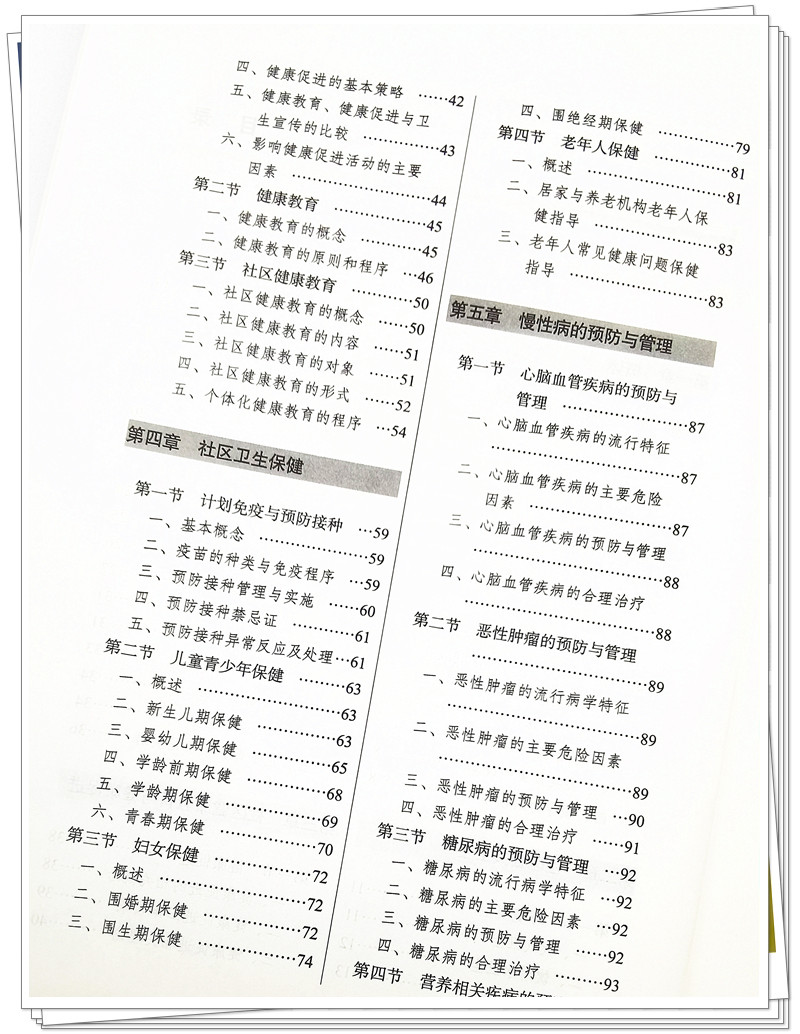 四、健康促进的基本策略 ……42
五、健康教育、健康促进与卫
生宣传的比较 ……………43
六、影响健康促进活动的主要
因素 ……………………44
第二节 健康教育 ………………45
一、健康教育的概念 …………45
二、健康教育的原则和程序 …46
第三节 社区健康教育 …………50
一、社区健康教育的概念 ……50
二、社区健康教育的内容 ……51
三、社区健康教育的对象 ……51
四、社区健康教育的形式 ……52
五、个体化健康教育的程序 …54
第四章 社区卫生保健
第一节 计划免疫与预防接种 …59
一、基本概念 …………………59
二、疫苗的种类与免疫程序 …59
三、预防接种管理与实施 ……60
四、预防接种禁忌证 …………61
五、预防接种异常反应及处理…61
第二节 儿童青少年保健 ………63
一、概述 ………………………63
二、新生儿期保健 ……………63
三、婴幼儿期保健 ……………65
四、学龄前期保健 ……………68
五、学龄期保健 ………………69
六、青春期保健 ………………70
第三节 妇女保健 ………………72
一、概述 ………………………72
二、围婚期保健 ………………72
三、围生期保健 ………………74
四、围绝经期保健 ……………79
第四节 老年人保健 ……………81
一、概述 ………………………81
二、居家与养老机构老年人保
健指导 …………………83
三、老年人常见健康问题保健
指导 ……………………83
第五章 慢性病的预防与管理
第一节 心脑血管疾病的预防与
管理 ……………………87
一、心脑血管疾病的流行特征
……………………………87
二、心脑血管疾病的主要危险
因素 ……………………87
三、心脑血管疾病的预防与管理
……………………………88
四、心脑血管疾病的合理治疗
……………………………88
第二节 恶性肿瘤的预防与管理
……………………………89
一、恶性肿瘤的流行病学特征
……………………………89
二、恶性肿瘤的主要危险因素
……………………………89
三、恶性肿瘤的预防与管理 …90
四、恶性肿瘤的合理治疗 ……91
第三节 糖尿病的预防与管理 …92
一、糖尿病的流行病学特征 …92
二、糖尿病的主要危险因素 …92
三、糖尿病的预防与管理 ……92
四、糖尿病的合理治疗 ………93
第四节 营养相关疾病的预